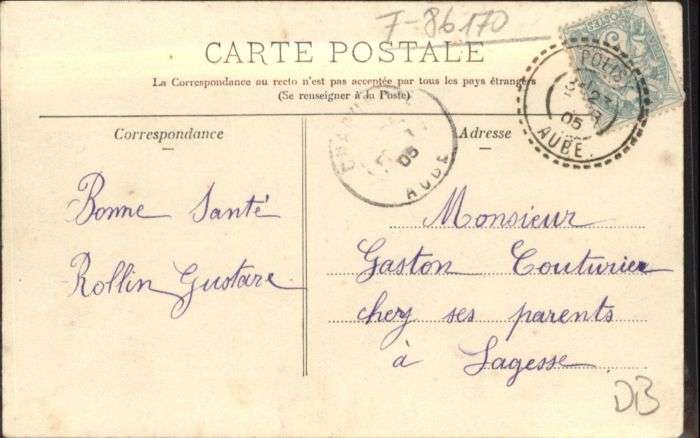 7-86170
CARTE POSTALE
La Correspondance au recto n'est pas acceptée par tous les pays étrangers
(Se renseigner à la Poste)
Correspondance
Bonne Santé
Rollin Gustave
Adresse
Monsieur
Gaston Couturier
chez ses parents
à Lagesse
05
AUBE
05
AUBE.
DB